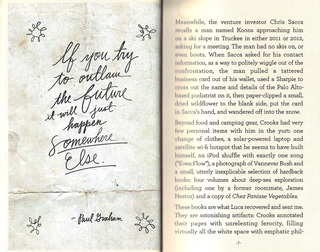 If you try
to outlaw
the future
it will just
happen
Somewhere
Else.
- Paul Graham
Meanwhile, the venture investor Chris Sacca
recalls a man named Koons approaching him
on a ski slope in Truckee in either 2011 or 2012,
asking for a meeting. The man had no skis on, or
even boots. When Sacca asked for his contact
information, as a way to politely wiggle out of the
confrontation, the man pulled a tattered
business card out of his wallet, used a Sharpie to
cross out the name and details of the Palo Alto-
based podiatrist on it, then paper-clipped a small,
dried wildflower to the blank side, put the card
in Sacca's hand, and wandered off into the snow.
Beyond food and camping gear, Crooks had very
few personal items with him in the yurt: one
change of clothes, a solar-powered laptop and
satellite wi-fi hotspot that he seems to have built
himself, an iPod shuffle with exactly one song
("Town Flow"), a photograph of Vannevar Bush and
a small, utterly inexplicable selection of hardback
books: four volumes about deep-sea exploration
(including one by a former roommate, James
Nestor) and a copy of Chez Panisse Vegetables.
These books are what Luca recovered and sent me.
They are astonishing artifacts: Crooks annotated
their pages with unrelenting ferocity, filling
virtually all the white space with emphatic phil-